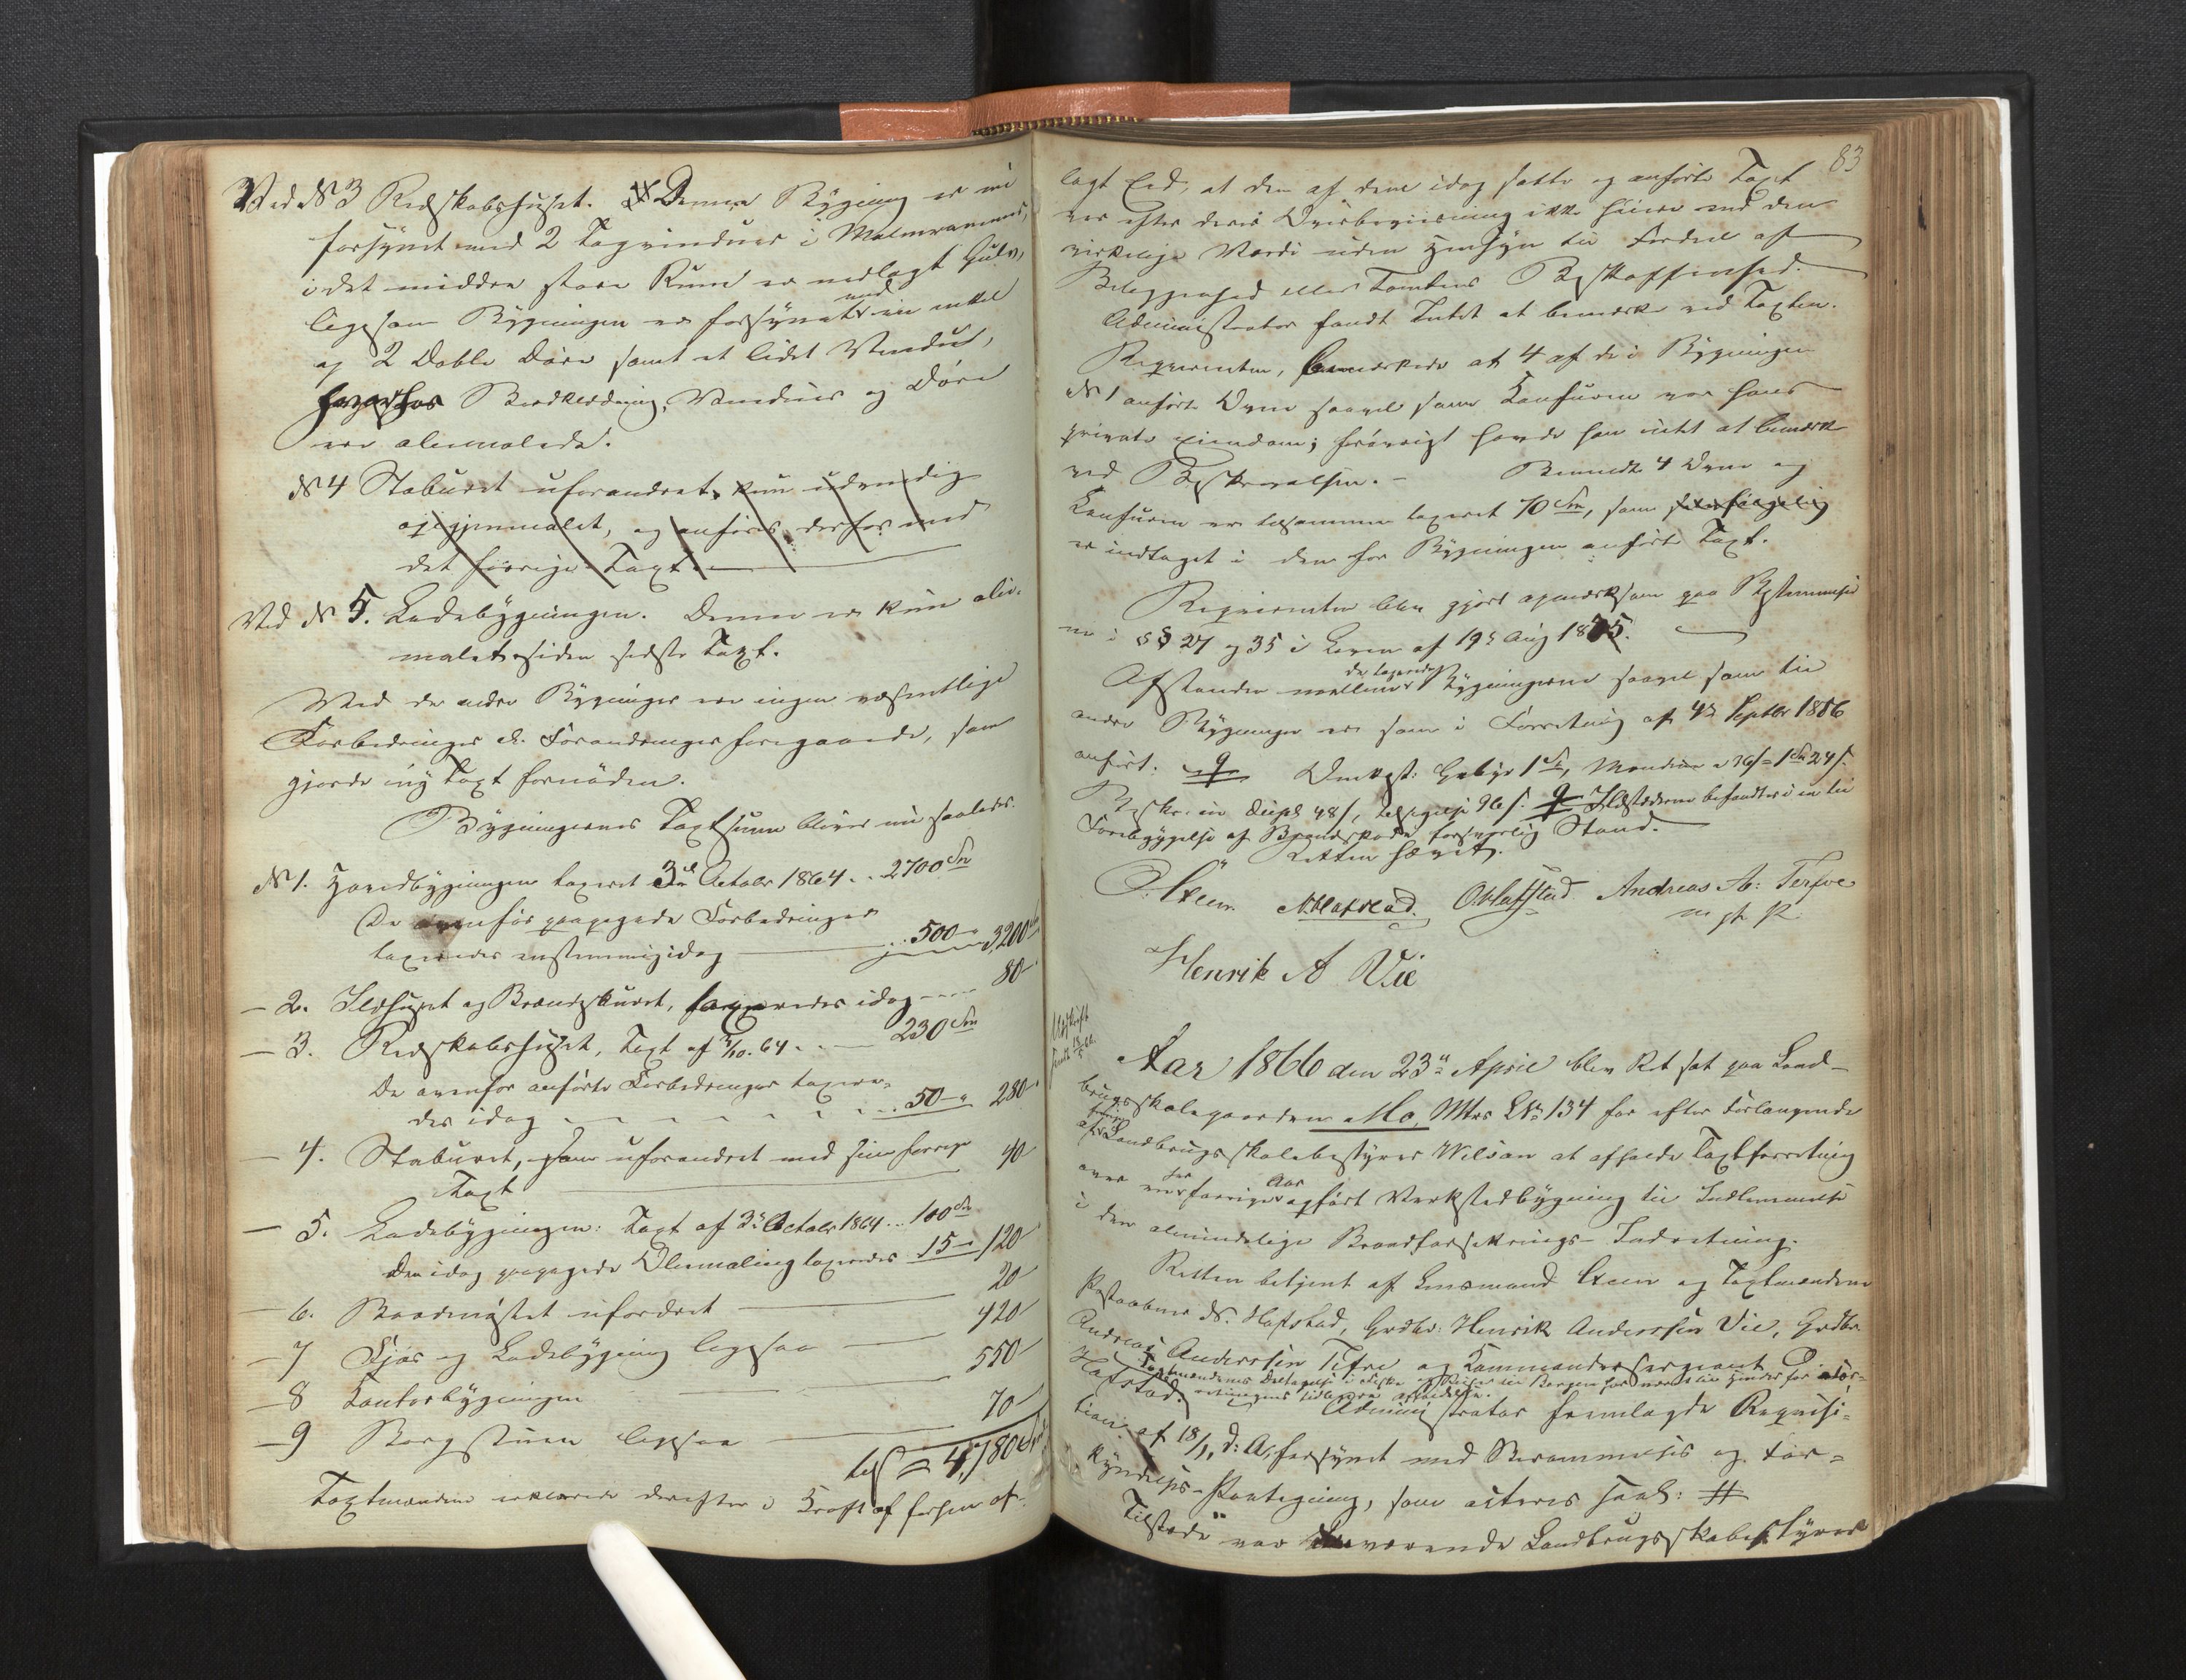 Ved № 3 Redskabshuset. Denne Bygning er nu
forsynet med 2 Tagvinduer i Malmrammer,
i det midtre store Rum er nedlagt Gulv,
ligesom Bygningen er forsynet med en enkel
og 2 Doble Døre samt et lidet Vindue,
hvorhos Bordklædning, Vinduer og Døre
ere oliemalede.
№ 4 Staburet uforandret, kun udvendig
igjenmalet, og anføres derfor med
det forrige Taxt
Ved № 5. Ladebygningen. Denne er kun olie-
malet siden sidste Taxt.
Med de andre Bygninger ere ingen væsentlige
Forbedringer el. Forandringer foregaaede, som
gjorde ny Taxt fornöden.
Bygningernes Taxtsum bliver nu saaledes:
№ 1. Hovedbygningen taxeret 3die Octobr 1864 .. 2700 Spd
De ovenfor paapegede Forbedringer
taxeredes enstemmig idag .. 500 " 3200
– 2. Ildhuset og Brændeskuret, taxeredes idag 80
– 3. Redskabshuset, Taxt af 3/10. 64 .. 230 Spd
De ovenfor anförte Forbedringer taxere-
des idag .. 50 " 280
– 4. Staburet, som uforandret med sin forrige 40
Taxt
– 5. Ladebygningen: Taxt af 3die Octobr 1864 .. 100 Spd
Den idag paapegede Oliemaling taxeredes 15 – 120
– 6. Baadnöstet uforandret 20
– 7 Fjøs og Ladebygning ligesaa 420
– 8 Kontorbygningen 550
– 9 Borgstuen ligesaa 70
tils = 4,780 Spd
Taxtmændene erklærede derefter i Kraft af forhen af-
83
lagt Eed, at den af dem idag satte og anførte Taxt
var efter deres Overbeviisning ikke höiere end den
virkelige Værdi uden Hensyn til Fordeel af
Beliggenhed eller Tomtens Beskaffenhed.
Administrator fandt Intet at bemærke ved Taxten.
Requirenten, bemærkede at 4 af de i Bygningen
№ 1 anförte Ovne saavel som Komfuren var hans
private Eiendom; forövrigt havde han intet at bemærke
ved Beskrivelsen. – Benævnte 4 Ovne og
Komfuren er tilsammen taxeret 70 Spd, som
er indtaget i den for Bygningen anförte Taxt.
Requirenten blev gjort opmærksom paa Bestemmelser-
ne i §§ 27 og 35 i Loven af 19de Aug 1845.
Afstanden mellem de taxerede Bygningerne saavel som til
andre Bygninger er som i Forretning af 4de Septbr 1856
anfört. Omkost: Gebyr 1 Spd, Mændene a 36 s = 1 Spd 24 s.
Beskr. in dupl 48 s, 96 s. Ildstederne befandtes i en til
Forebyggelse af Brandskade forsvarlig Stand.
Retten hævet.
Steen. N. Hafstad. O. Hafstad. Andreas A: Tefre
m p P.
Henrik A Vie
Udskrift
sendt
Aar 1866 den 23de April blev Ret sat paa Land-
brugsskolegaarden Mo, Mtr. L№ 134 for efter Forlangende
af Landbrugsskolebestyrer Wilson at afholde Taxtforretning
over forrige Aar opfört Værkstedbygning til Indlemmelse
i den almindelige Brandforsikrings-Indretning.
Retten betjent af Lensmand Steen og Taxtmændene
Postaabner N. Hafstad, Grdbr: Henrik Anderssen Vie, Grdbr
Andreas Anderssen Tefre og Kommandersergeant O.
Hafstad.
Taxtmændenes Deltagelse i
Administrator fremlagde Requisi-
tion af 18/1, d: A, forsynet med Berammelses og For-
kyndelses-Paategning, som acteres saal: #
Tilstede var nuværende Landbrugsskolebestyrer